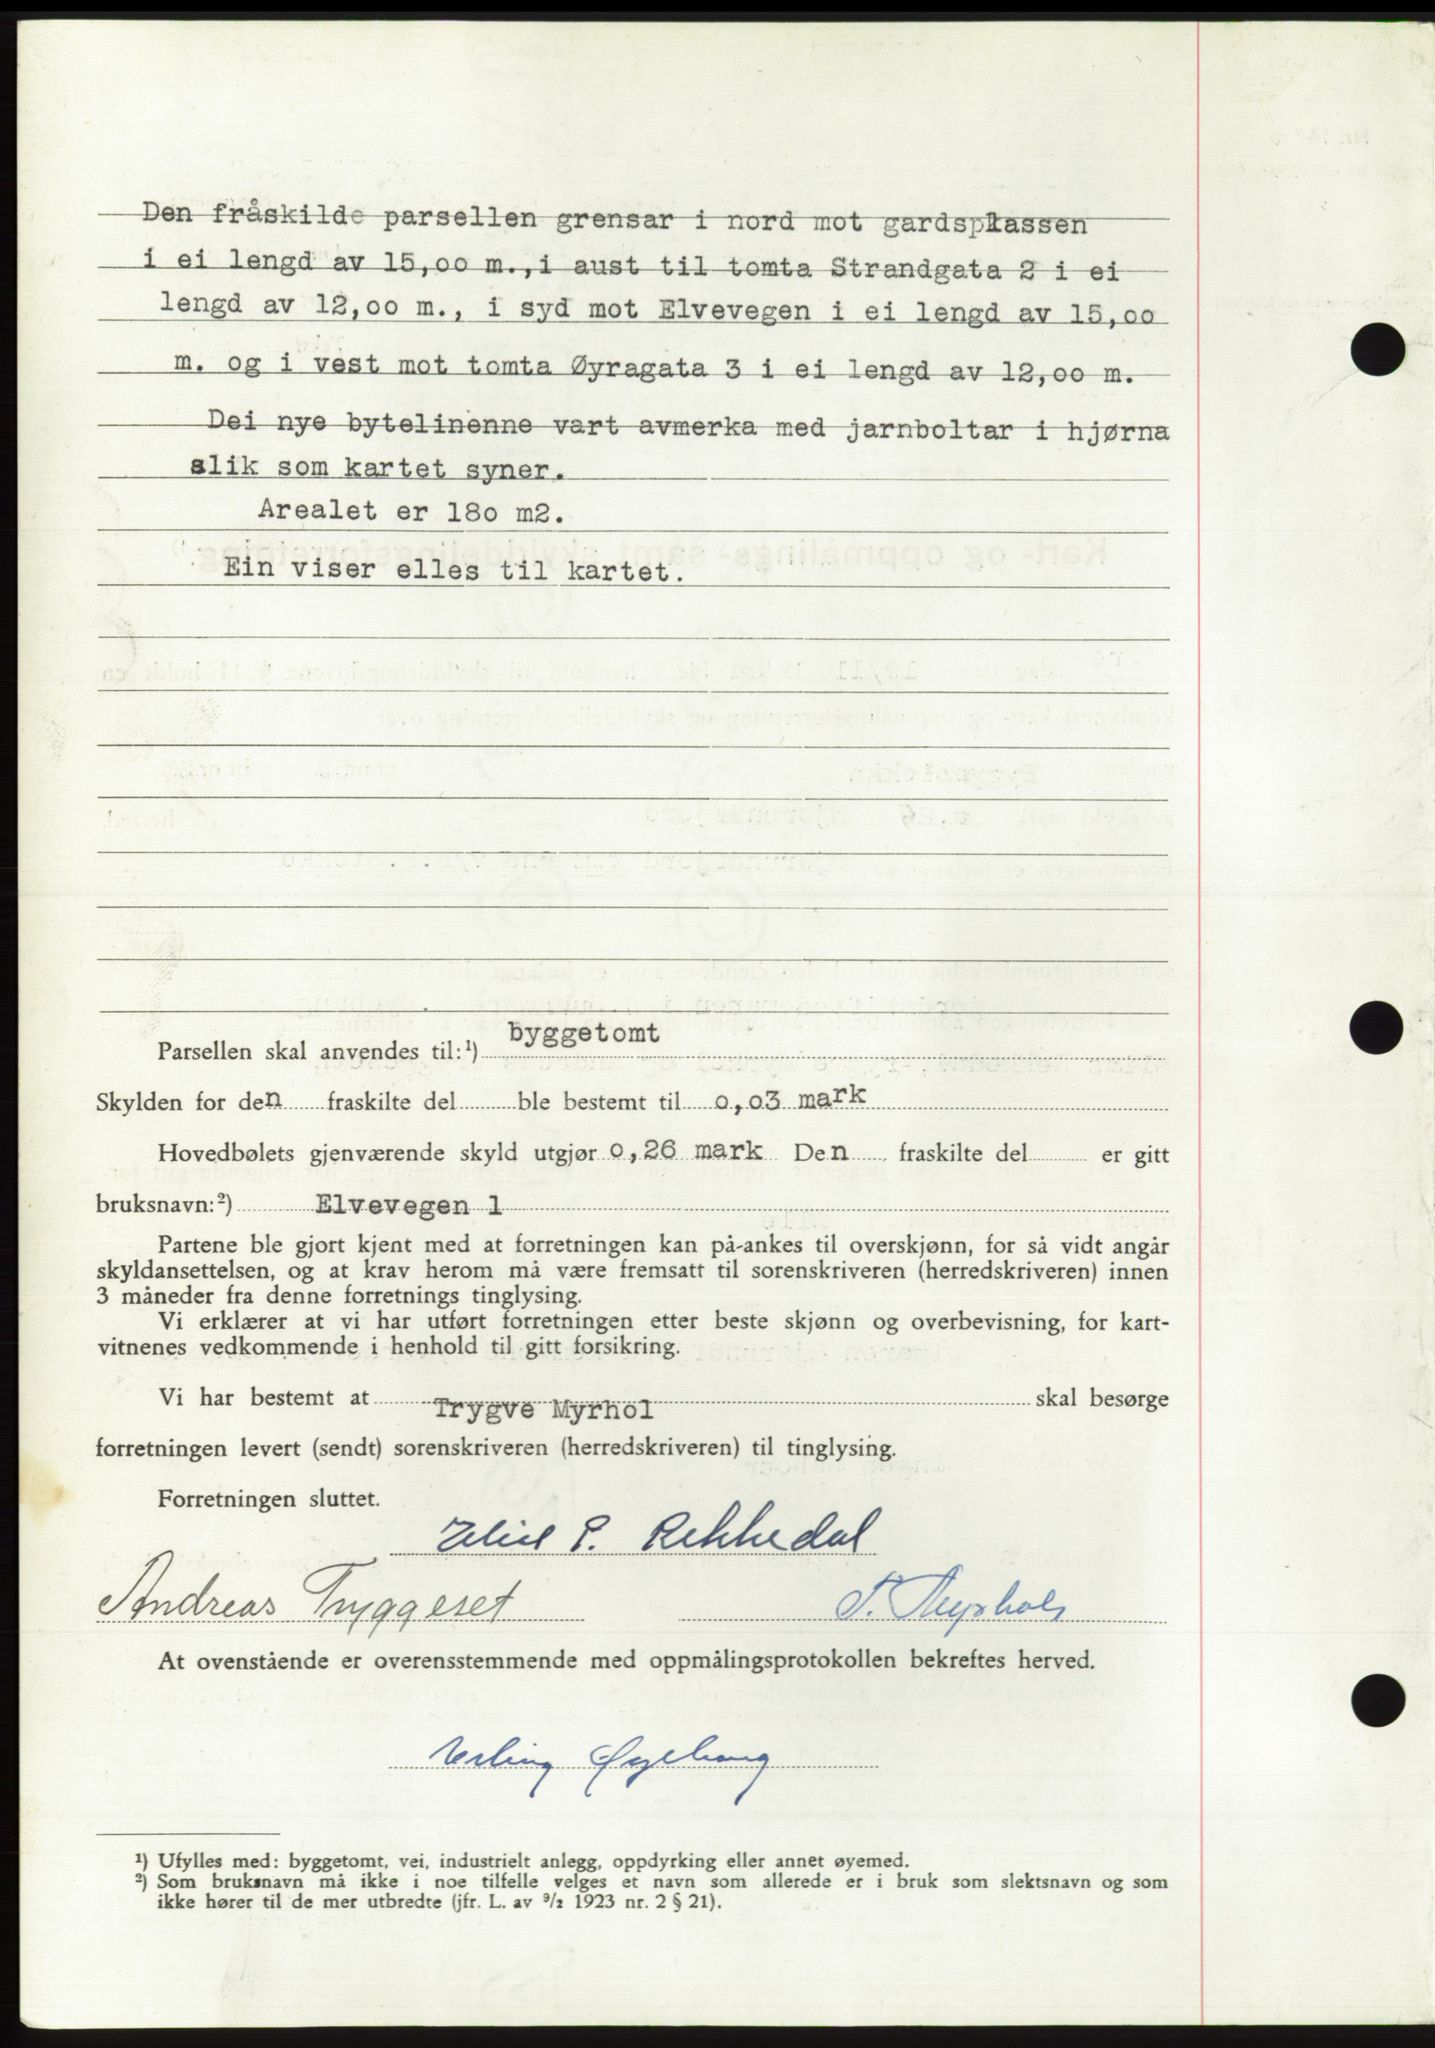 Den fråskilde parsellen grensar i nord mot gardsplassen
i ei lengd av 15,oo m., i aust til tomta Strandgata 2 i ei
lengd av 12,oo m., i syd mot Elvevegen i ei lengd av 15,oo
m. og i vest mot tomta Øyragata 3 i ei lengd av 12,oo m.
Dei nye bytelinenne vart avmerka med jarnboltar i hjørna
slik som kartet syner.
Arealet er 18o m2.
Ein viser elles til kartet.
Parsellen skal anvendes til:¹) byggetomt
Skylden for den fraskilte del ble bestemt til o,o3 mark
Hovedbølets gjenværende skyld utgjør o,26 mark Den fraskilte del er gitt
bruksnavn:²) Elvevegen 1
Partene ble gjort kjent med at forretningen kan på-ankes til overskjønn, for så vidt angår
skyldansettelsen, og at krav herom må være fremsatt til sorenskriveren (herredskriveren) innen
3 måneder fra denne forretnings tinglysing.
Vi erklærer at vi har utført forretningen etter beste skjønn og overbevisning, for kart-
vitnenes vedkommende i henhold til gitt forsikring.
Vi har bestemt at Trygve Myrhol skal besørge
forretningen levert (sendt) sorenskriveren (herredskriveren) til tinglysing.
Forretningen sluttet.
P. Rekkedal
Andreas Tryggeset
At ovenstående er overensstemmende med oppmålingsprotokollen bekreftes herved.
Erling
¹) Ufylles med: byggetomt, vei, industrielt anlegg, oppdyrking eller annet øyemed.
²) Som bruksnavn må ikke i noe tilfelle velges et navn som allerede er i bruk som slektsnavn og som
ikke hører til de mer utbredte (jfr. L. av ⁹/₂ 1923 nr. 2 § 21).